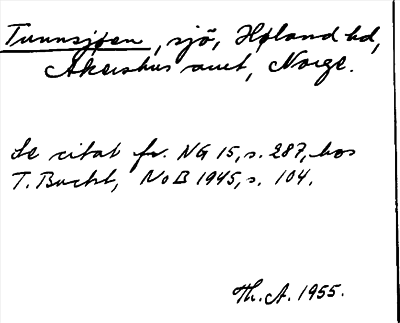 Tunnsjøen, sjö, Høland hd,
Akershus amt, Norge.
Se citat fr. NG 15, s. 287, hos
T. Bucht, NoB 1945, s. 104.
Th. A. 1955.